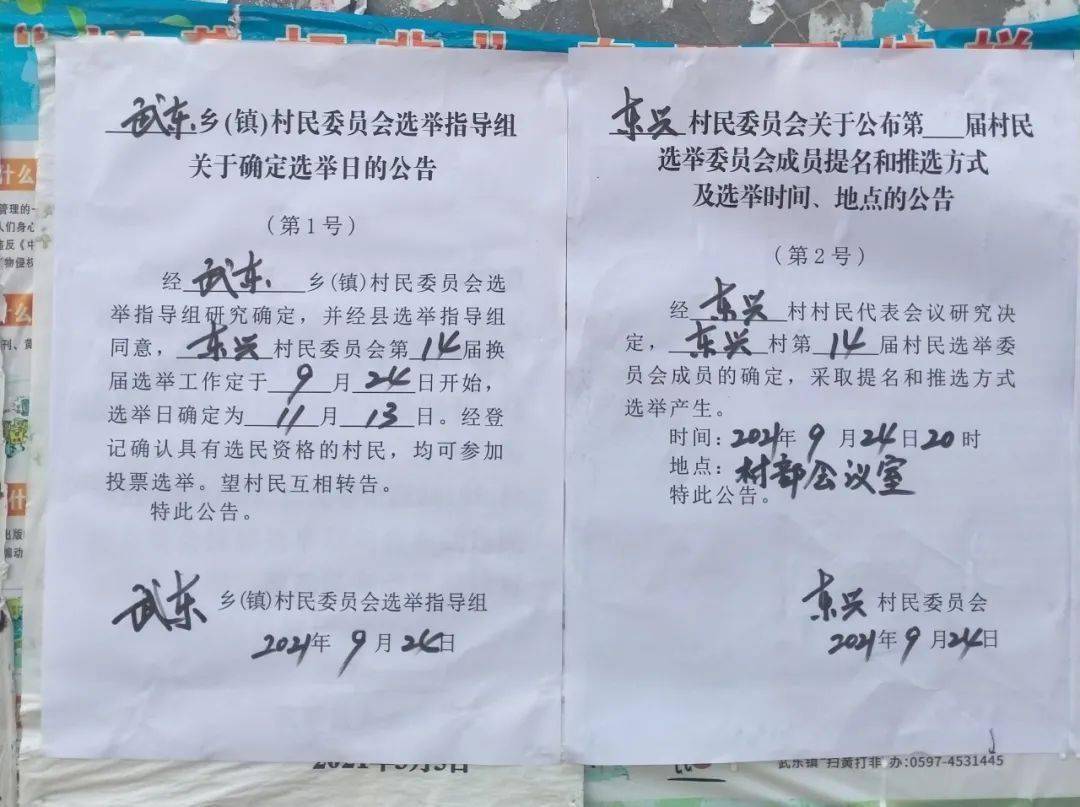 武东乡(镇)村民委员会选举指导组
关于确定选举日的公告
(第1号)
经武东乡(镇)村民委员会选
举指导组研究确定，并经县选举指导组
同意，东兴村民委员会第14届换
届选举工作定于9月24日开始，
选举日确定为11月13日。经登
记确认具有选民资格的村民，均可参加
投票选举。望村民互相转告。
特此公告。
武东乡(镇)村民委员会选举指导组
2021年9月24日
东兴村民委员会关于公布第___届村民
选举委员会成员提名和推选方式
及选举时间、地点的公告
(第2号)
经东兴村村民代表会议研究决
定，东兴村第14届村民选举委
员会成员的确定，采取提名和推选方式
选举产生。
时间：2021年9月24日20时
地点：村部会议室
特此公告。
东兴村民委员会
2021年9月24日
什么
管理的一
人们身心
违反《中
物侵权
刊、黄
什
出版
编动
武东镇"扫黄打非"办:0597-4531445